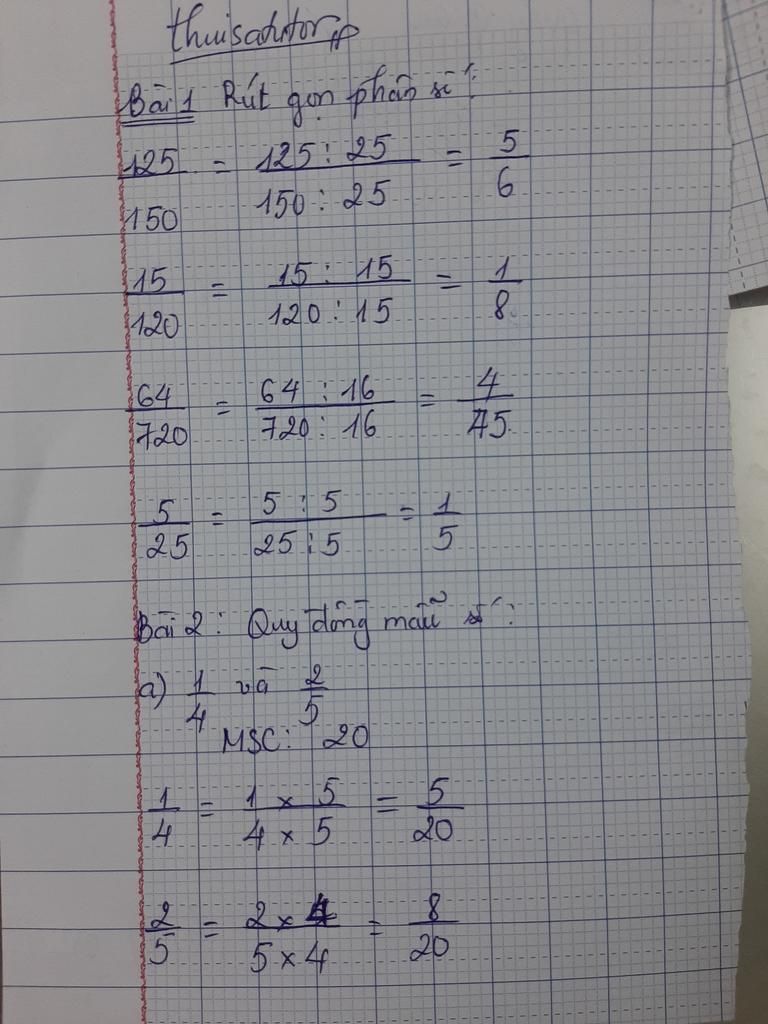 thuisahntor
Bài 1 Rút gọn phân số:
125/150 = 125 : 25/150 : 25 = 5/6
15/120 = 15 : 15/120 : 15 = 1/8
64/720 = 64 : 16/720 : 16 = 4/45
5/25 = 5 : 5/25 : 5 = 1/5
Bài 2 : Quy đồng mẫu số :
a) 1/4 và 2/5
MSC: 20
1/4 = 1 x 5/4 x 5 = 5/20
2/5 = 2 x 4/5 x 4 = 8/20